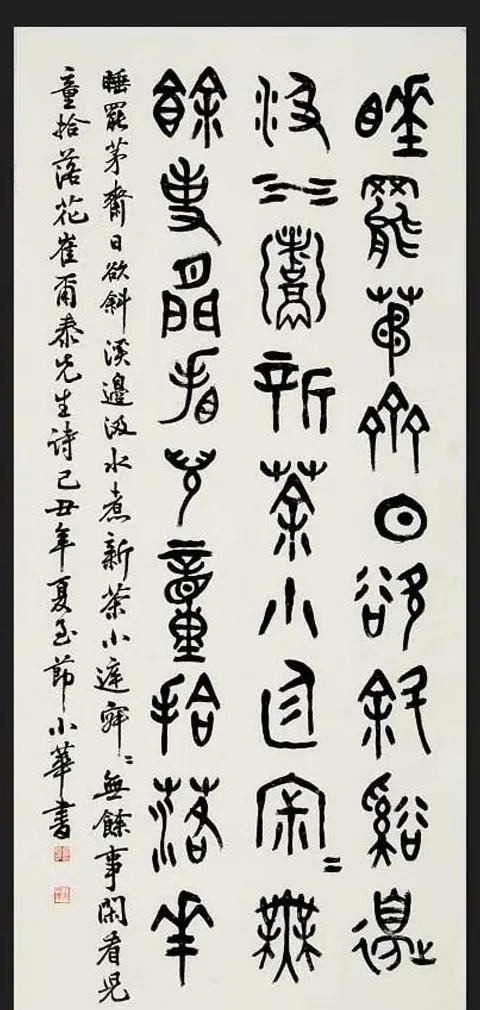 睡罷茅齊日欲斜谿邊
汲水煮新茶小庭寂〻無
餘事閒看兒童拾落花
睡罷茅齋日欲斜溪邊汲水煮新茶小庭寂〻無餘事閑看兒
童拾落花崔爾泰先生詩己丑年夏至節小華書